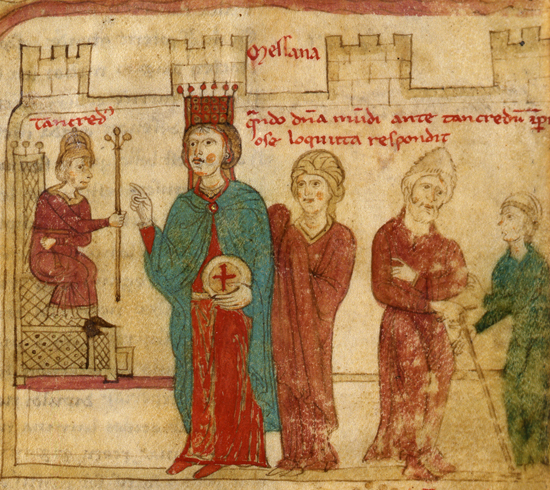 Messana
Tancred9
Qn̄do dn̄a mūdi ante tancredū īp̄i
ose loquitta respondit